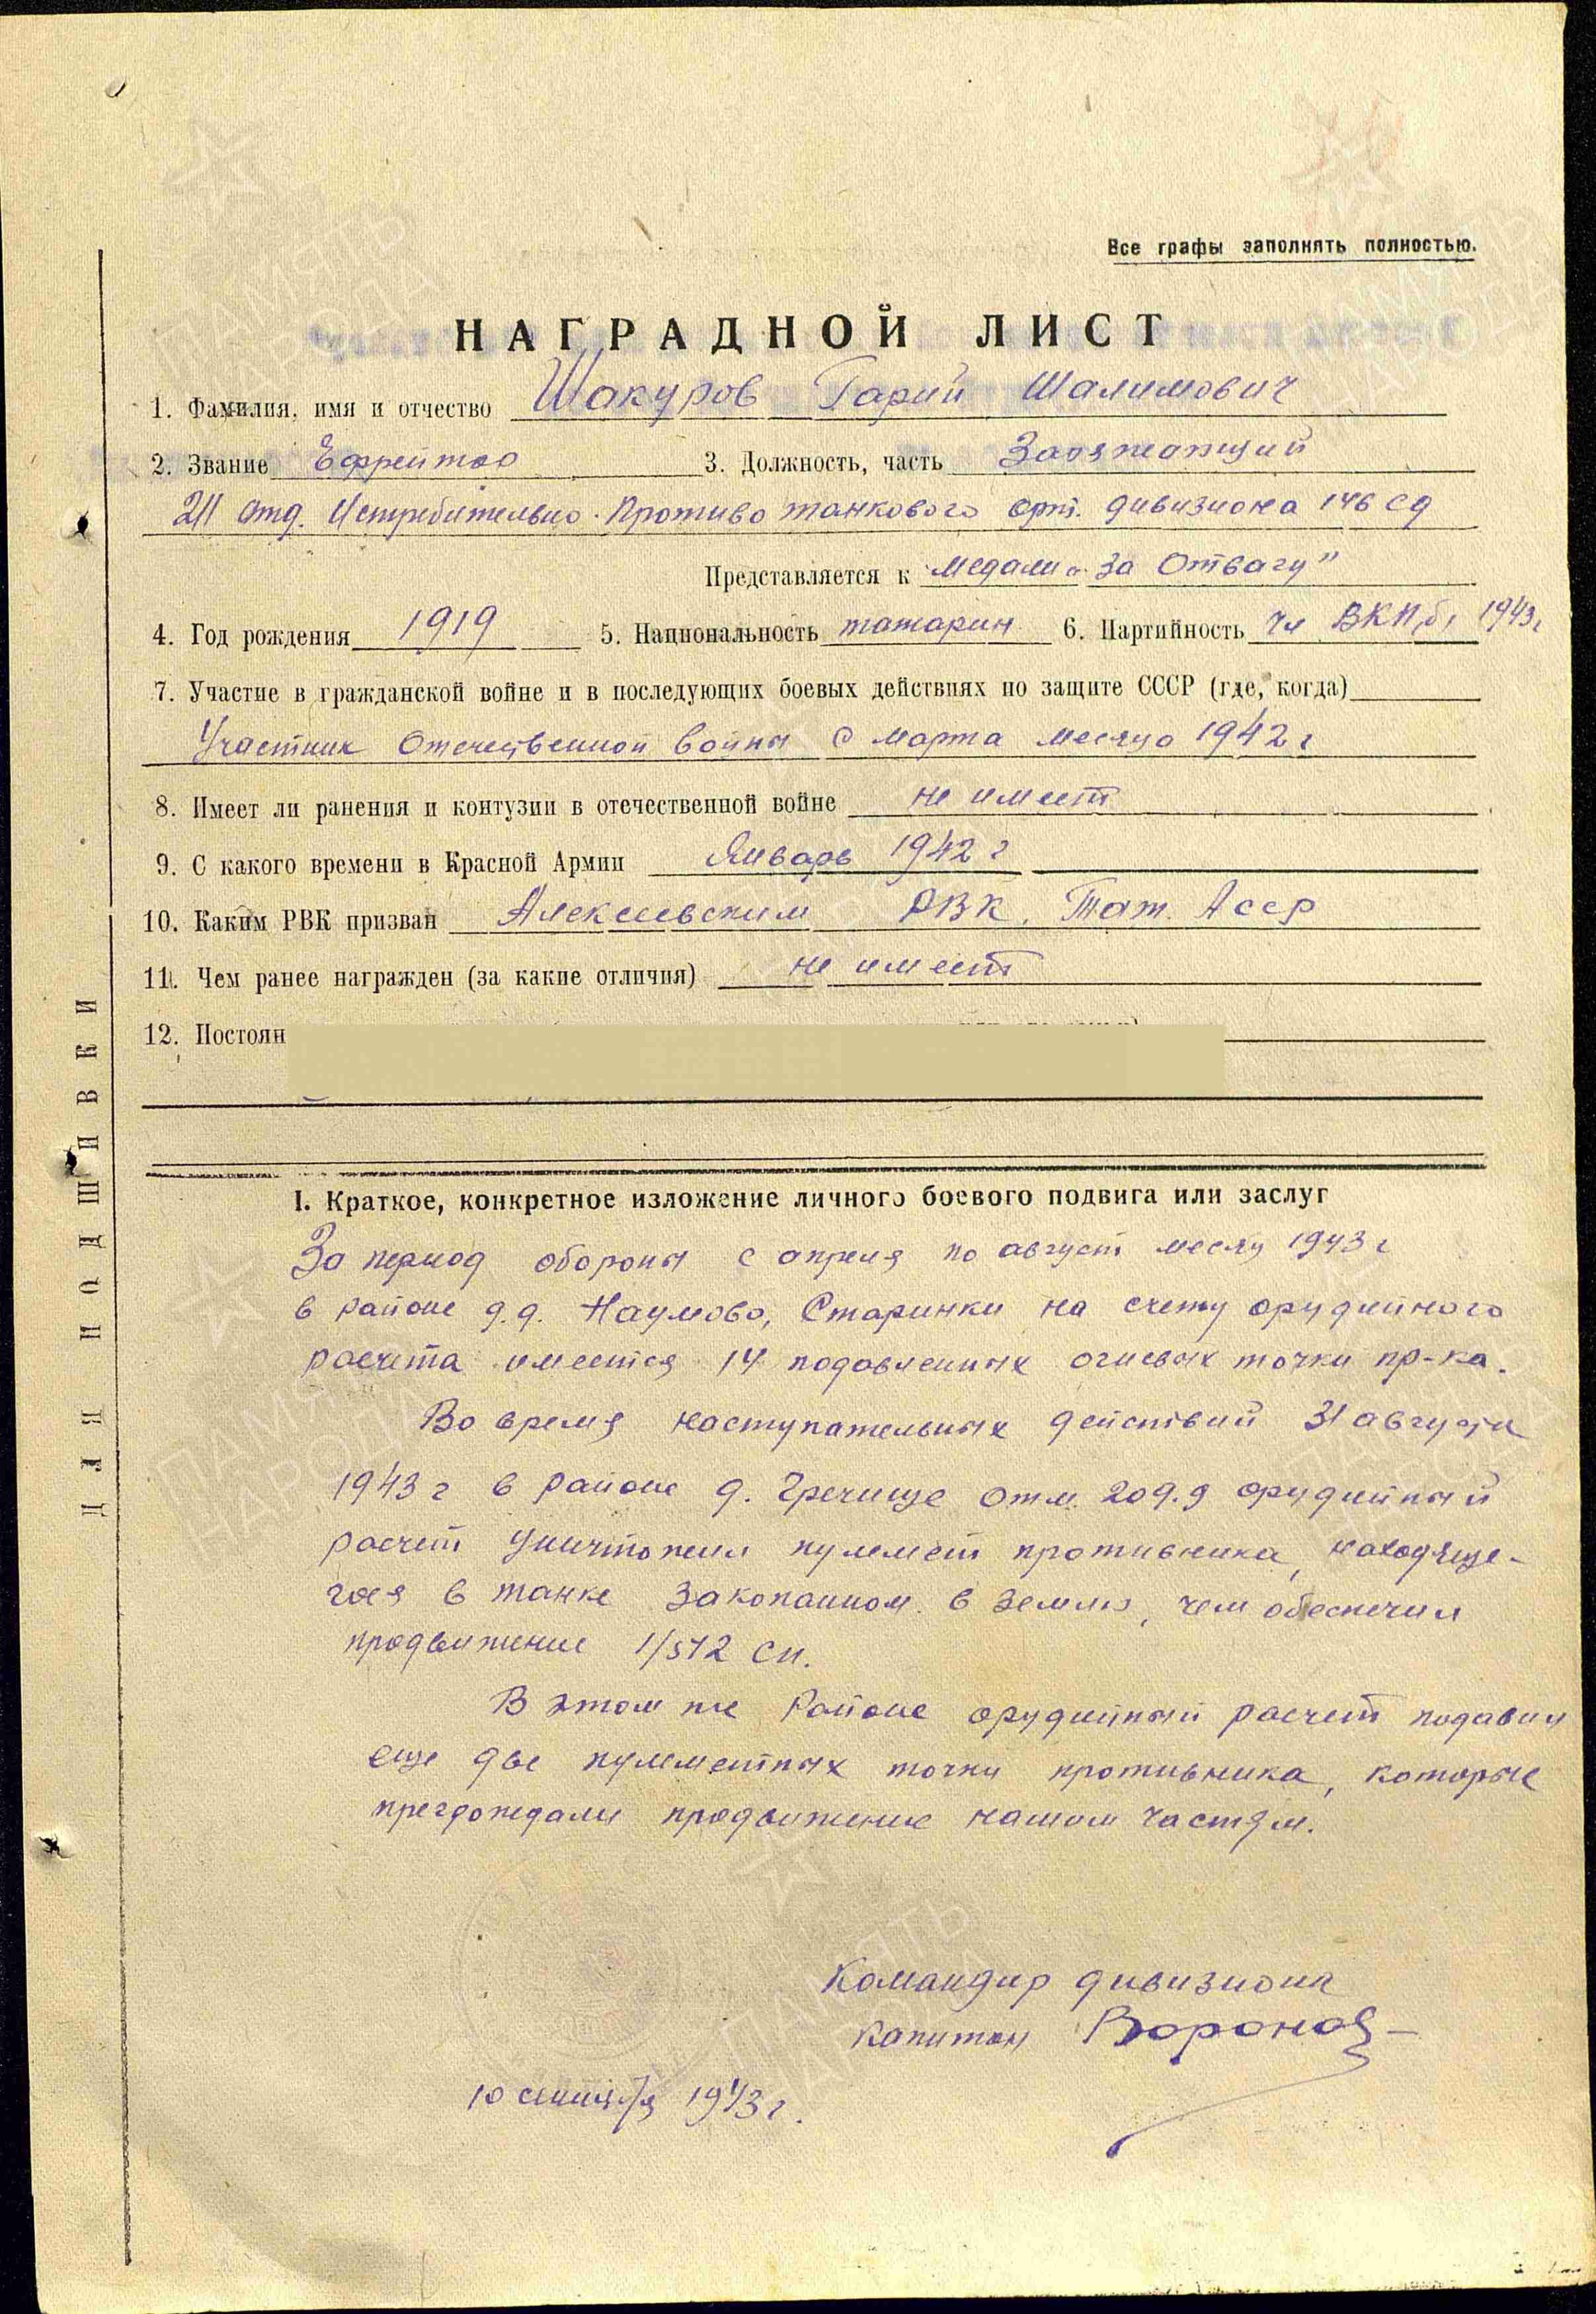 Все графы заполнять полностью.
НАГРАДНОЙ ЛИСТ
1. Фамилия, имя и отчество Шакуров Гарий Шалимович
2. Звание Ефрейтор 3. Должность, часть Заряжающий
211 отд. Истребительно-Противотанкового арт. дивизиона 146 сд
Представляется к медали "За Отвагу"
4. Год рождения 1919 5. Национальность татарин 6. Партийность чл ВКП(б) 1943г
7. Участие в гражданской войне и в последующих боевых действиях по защите СССР (где, когда)
Участник Отечественной войны с марта месяца 1942 г
8. Имеет ли ранения и контузии в отечественной войне не имеет
9. С какого времени в Красной Армии Январь 1942 г
10. Каким РВК призван Алексеевским РВК, Тат. Асср
11. Чем ранее награжден (за какие отличия) не имеет
12. Постоян
ДЛЯ ПОДШИВКИ
I. Краткое, конкретное изложение личного боевого подвига или заслуг
За период обороны с апреля по август месяц 1943 г
в районе д.д. Наумово, Старинки на счету орудийного
расчета имеется 14 подавленных огневых точки пр-ка.
Во время наступательных действий 31 августа
1943 г в районе д. Гречище отм. 209.9 орудийный
расчет уничтожил пулемет противника, находяще-
гося в танке закопанном в землю, чем обеспечил
продвижение 1/512 сп.
В этом же районе орудийный расчет подавил
еще две пулеметных точки противника, которые
преграждали продвижение нашим частям.
Командир дивизиона
капитан Воронов
10 сентября 1943 г.
ПАМЯТЬ НАРОДА